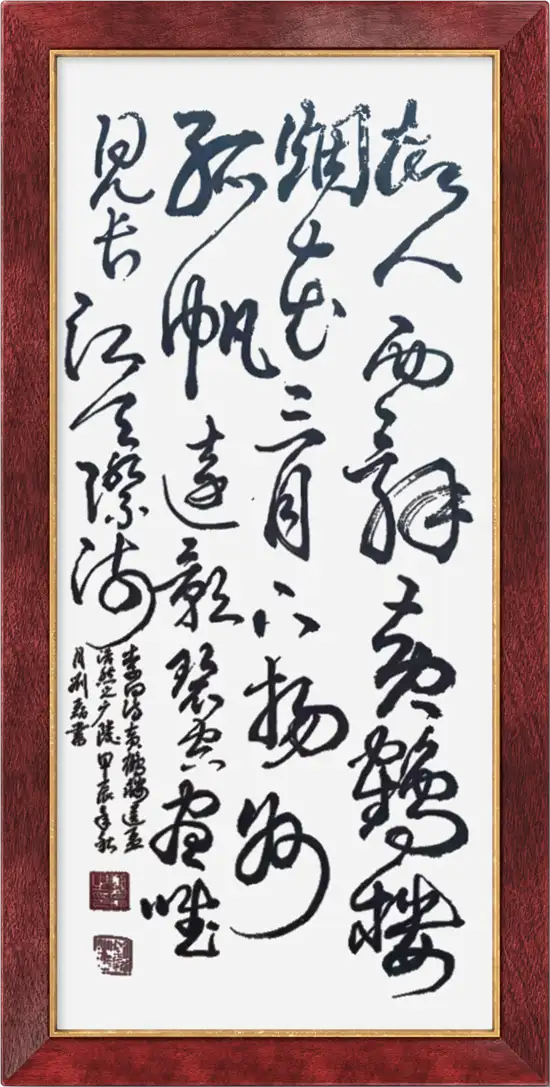 故人西辞黄鹤楼
烟花三月下扬州
孤帆远影碧空尽唯
见长江天际流
李白诗黄鹤楼送孟
浩然之广陵甲辰年秋
月刘磊书